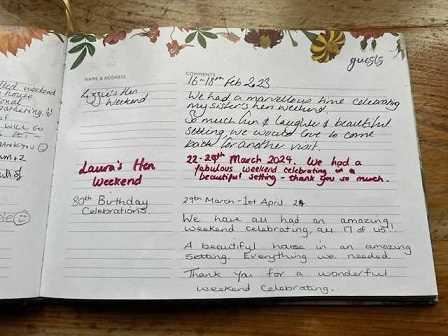 guests
NAME & ADDRESS
COMMENTS
Lizzie's Hen
Weekend
16-18th Feb 2023
We had a marvellous time celebrating
my sister's hen weekend.
So much fun & laughter & beautiful
setting, we would love to come
back for another visit.
Laura's Hen
Weekend
22-24th March 2024. We had a
fabulous weekend celebrating in a
beautiful setting - thank you so much.
80th Birthday
Celebrations
29th March - 1st April 24
We have all had an amazing
weekend celebrating, all 17 of us!
A beautiful house in an amazing
setting. Everything we needed.
Thank you for a wonderful
weekend celebrating.
weekend
will go